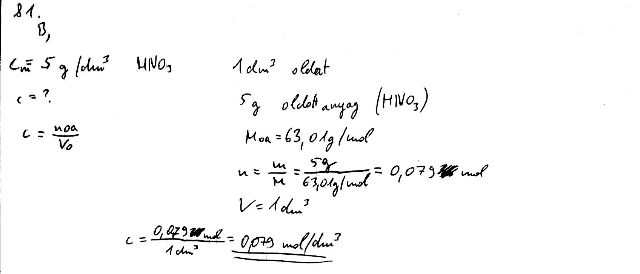 81.
B,
cm = 5 g/dm³ HNO₃ 1 dm³ oldat
c = ?
5g oldott anyag (HNO₃)
c = noa/Vo
Moa = 63,01g/mol
n = m/M = 5g/63,01g/mol = 0,079 mol
V = 1 dm³
c = 0,079 mol/1 dm³ = 0,079 mol/dm³